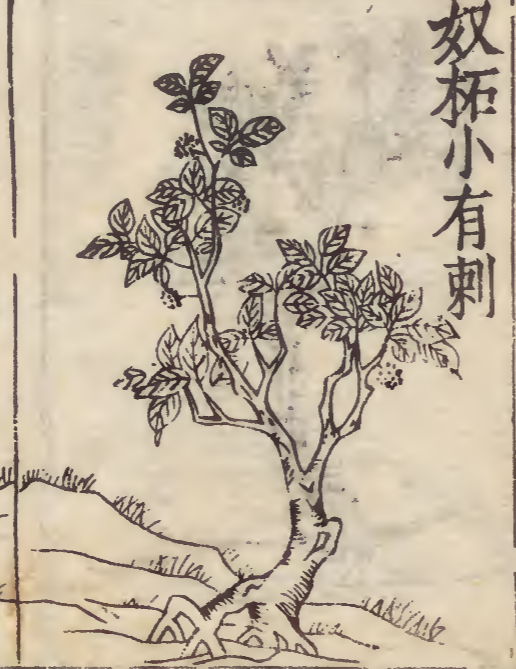 奴柘小有刺